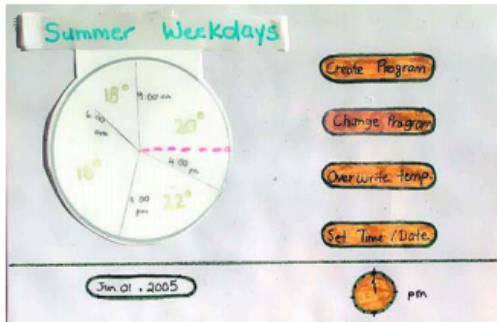 Summer Weekdays
18°
9:00 am
20°
6:00
am
4:00
pm
22°
pm
Create Program
Change Program
Overwrite temp.
Set Time/Date
Jun 01, 2005
pm